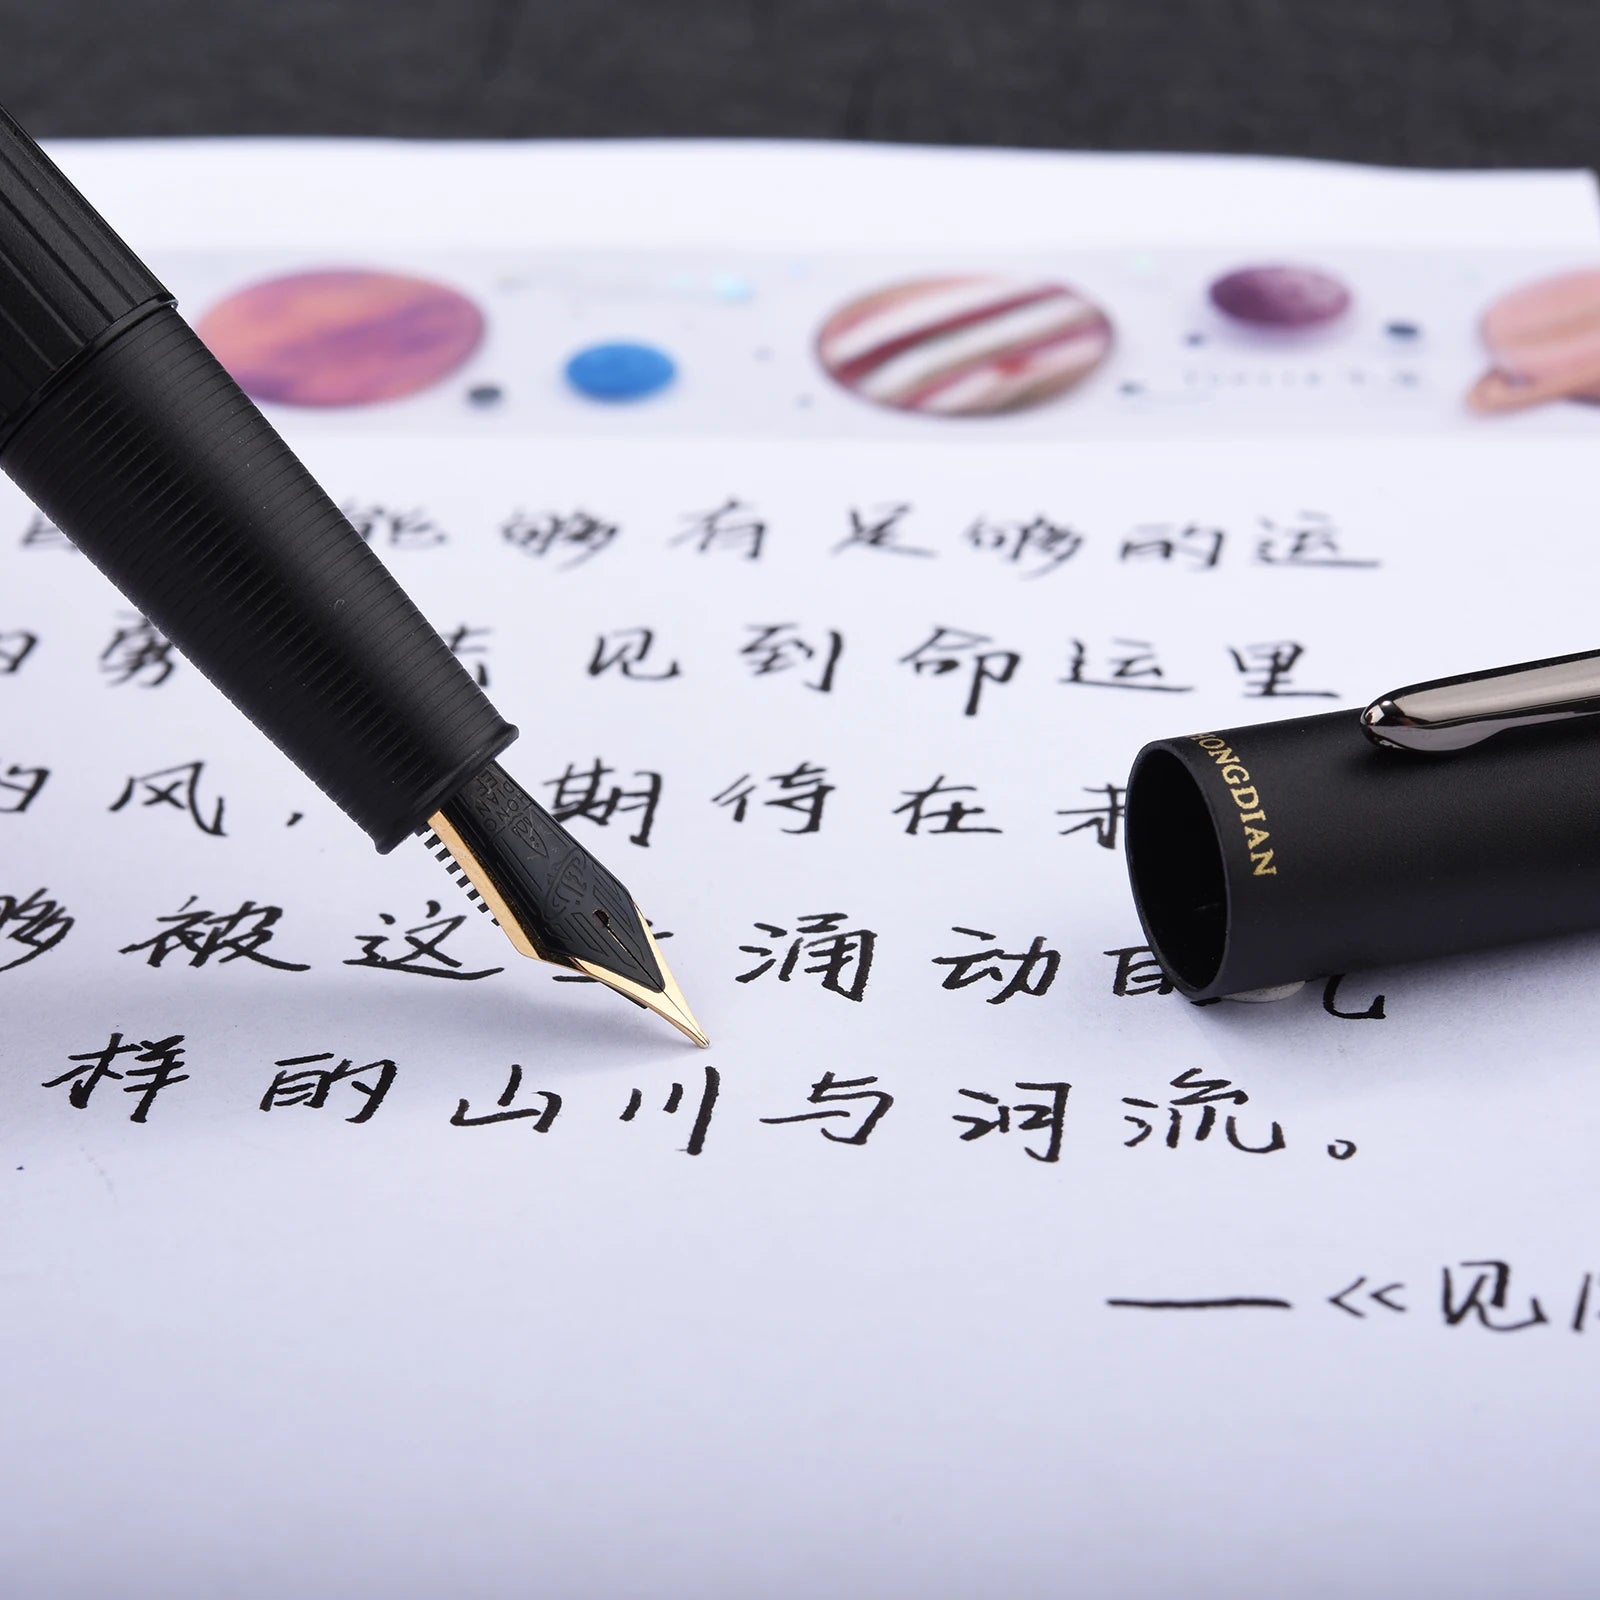 能够有足够的运
勇 见到命运里
的风，期待在
够被这 涌动自
样的山川与河流。
HONGDIAN
—《见